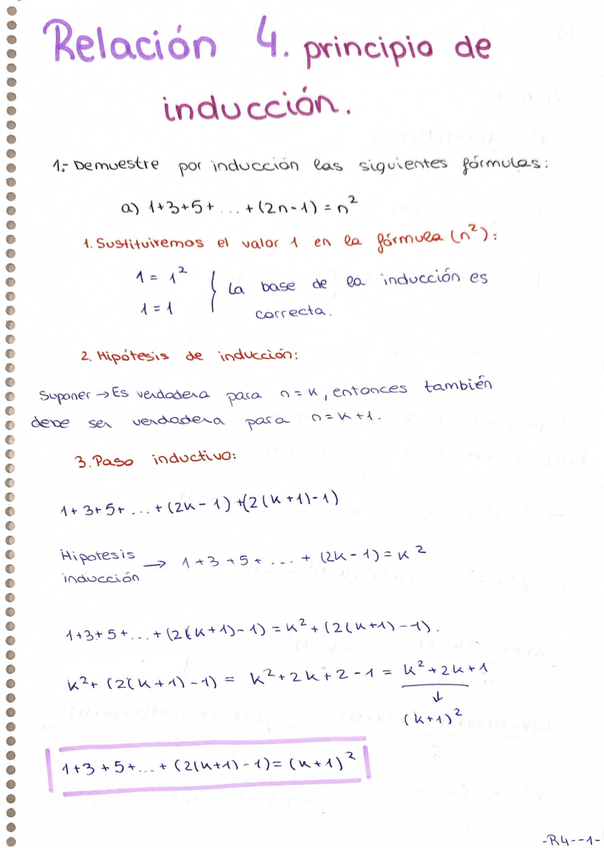 Relación 4. principio de
inducción.
1.- Demuestre por inducción las siguientes fórmulas:
a) 1+3+5+ ... +(2n-1) = n²
1. Sustituiremos el valor 1 en la fórmula (n²):
1 = 1²
1 = 1
La base de la inducción es
correcta.
2. Hipótesis de inducción:
Suponer → Es verdadera para n = k, entonces también
debe ser verdadera para n = k+1.
3. Paso inductivo:
1+3+5+ ... +(2k-1)+(2(k+1)-1)
Hipotesis
inducción → 1+3+5+ ... + (2k-1) = k²
1+3+5+...+(2(k+1)-1) = k²+(2(k+1)-1).
k²+ (2(k+1)-1) = k²+2k+2-1 = k²+2k+1
↓
(k+1)²
1+3+5+...+(2(k+1)-1) = (k+1)²
-R4--1-